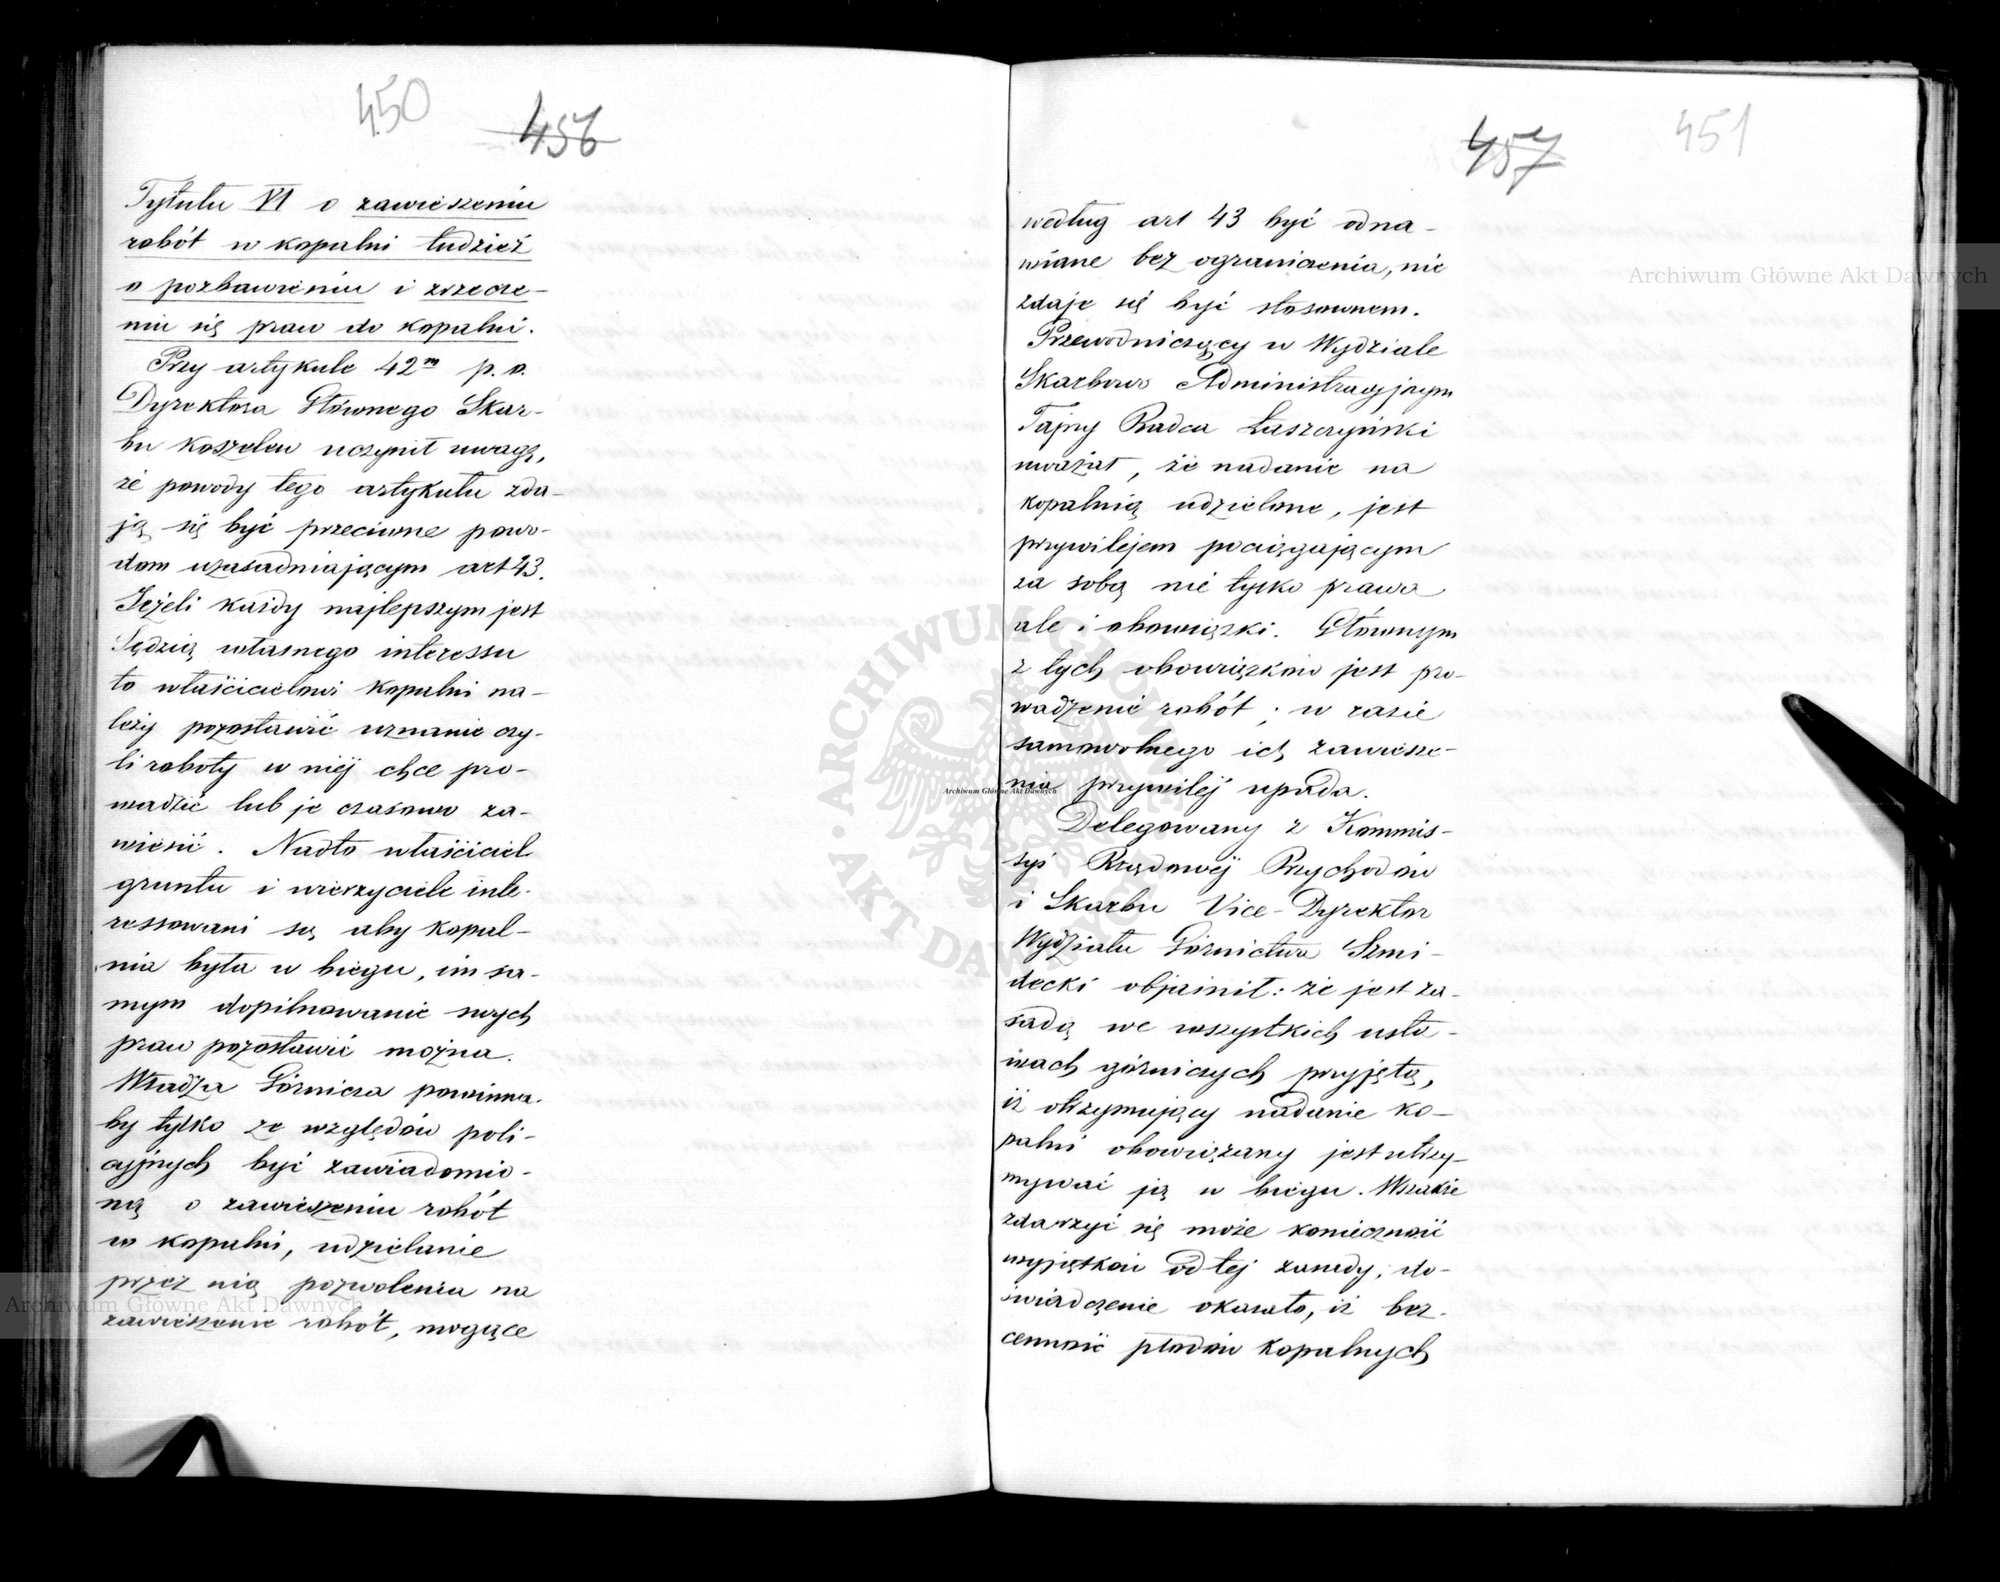 450
456
Tytułu VI o zawieszeniu
robót w kopalni tudzież
o pozbawieniu i zrzecze-
niu się praw do kopalni.
Przy artykule 42m p. o.
Dyrektora Głównego Skar-
bu Koszelew uczynił uwagę,
że powody tego artykułu zda-
ją się być przeciwne powo-
dom uzasadniającym art 43.
Jeżeli każdy najlepszym jest
Sędzią własnego interessu
to właścicielowi kopalni na-
leży pozostawić uznanie czy-
li roboty w niej chce pro-
wadzić lub je czasowo za-
wiesić. Nadto właściciel
gruntu i wierzyciele inte-
ressowani są aby kopal-
nia była w biegu, im sa-
mym dopilnowanie swych
praw pozostawić można.
Władza Górnicza powinna-
by tylko ze względów poli-
cyjnych być zawiadomio-
ną o zawieszeniu robót
w kopalni, udzielanie
przez nią pozwolenia na
zawieszenie robót, mogące
457
451
według art 43 być odna-
wiane bez ograniczenia, nie
zdaje się być stosownem.
Przewodniczący w Wydziale
Skarbowo Administracyjnym
Tajny Radca Łaszczyński
uważał, że nadanie na
kopalnią udzielone, jest
przywilejem pociągającym
za sobą nie tylko prawa
ale i obowiązki. Głównym
z tych obowiązków jest pro-
wadzenie robót; w razie
samowolnego ich zawiesze-
nia przywilej upada.
Delegowany z Kommis-
syi Rządowéj Przychodów
i Skarbu Vice-Dyrektor
Wydziału Górnictwa Szmi-
decki objaśnił: że jest za-
sadą we wszystkich usta-
wach górniczych przyjętą,
iż otrzymujący nadanie ko-
palni obowiązany jest utrzy-
mywać ją w biegu. Wszakże
zdarzyć się może konieczność
wyjątków od tej zasady; do-
świadczenie okazało, iż bez-
cenność płodów kopalnych
Archiwum Główne Akt Dawnych
Archiwum Główne Akt Dawnych
Archiwum Główne Akt Dawnych
ARCHIWUM GŁÓWNE AKT DAWNYCH